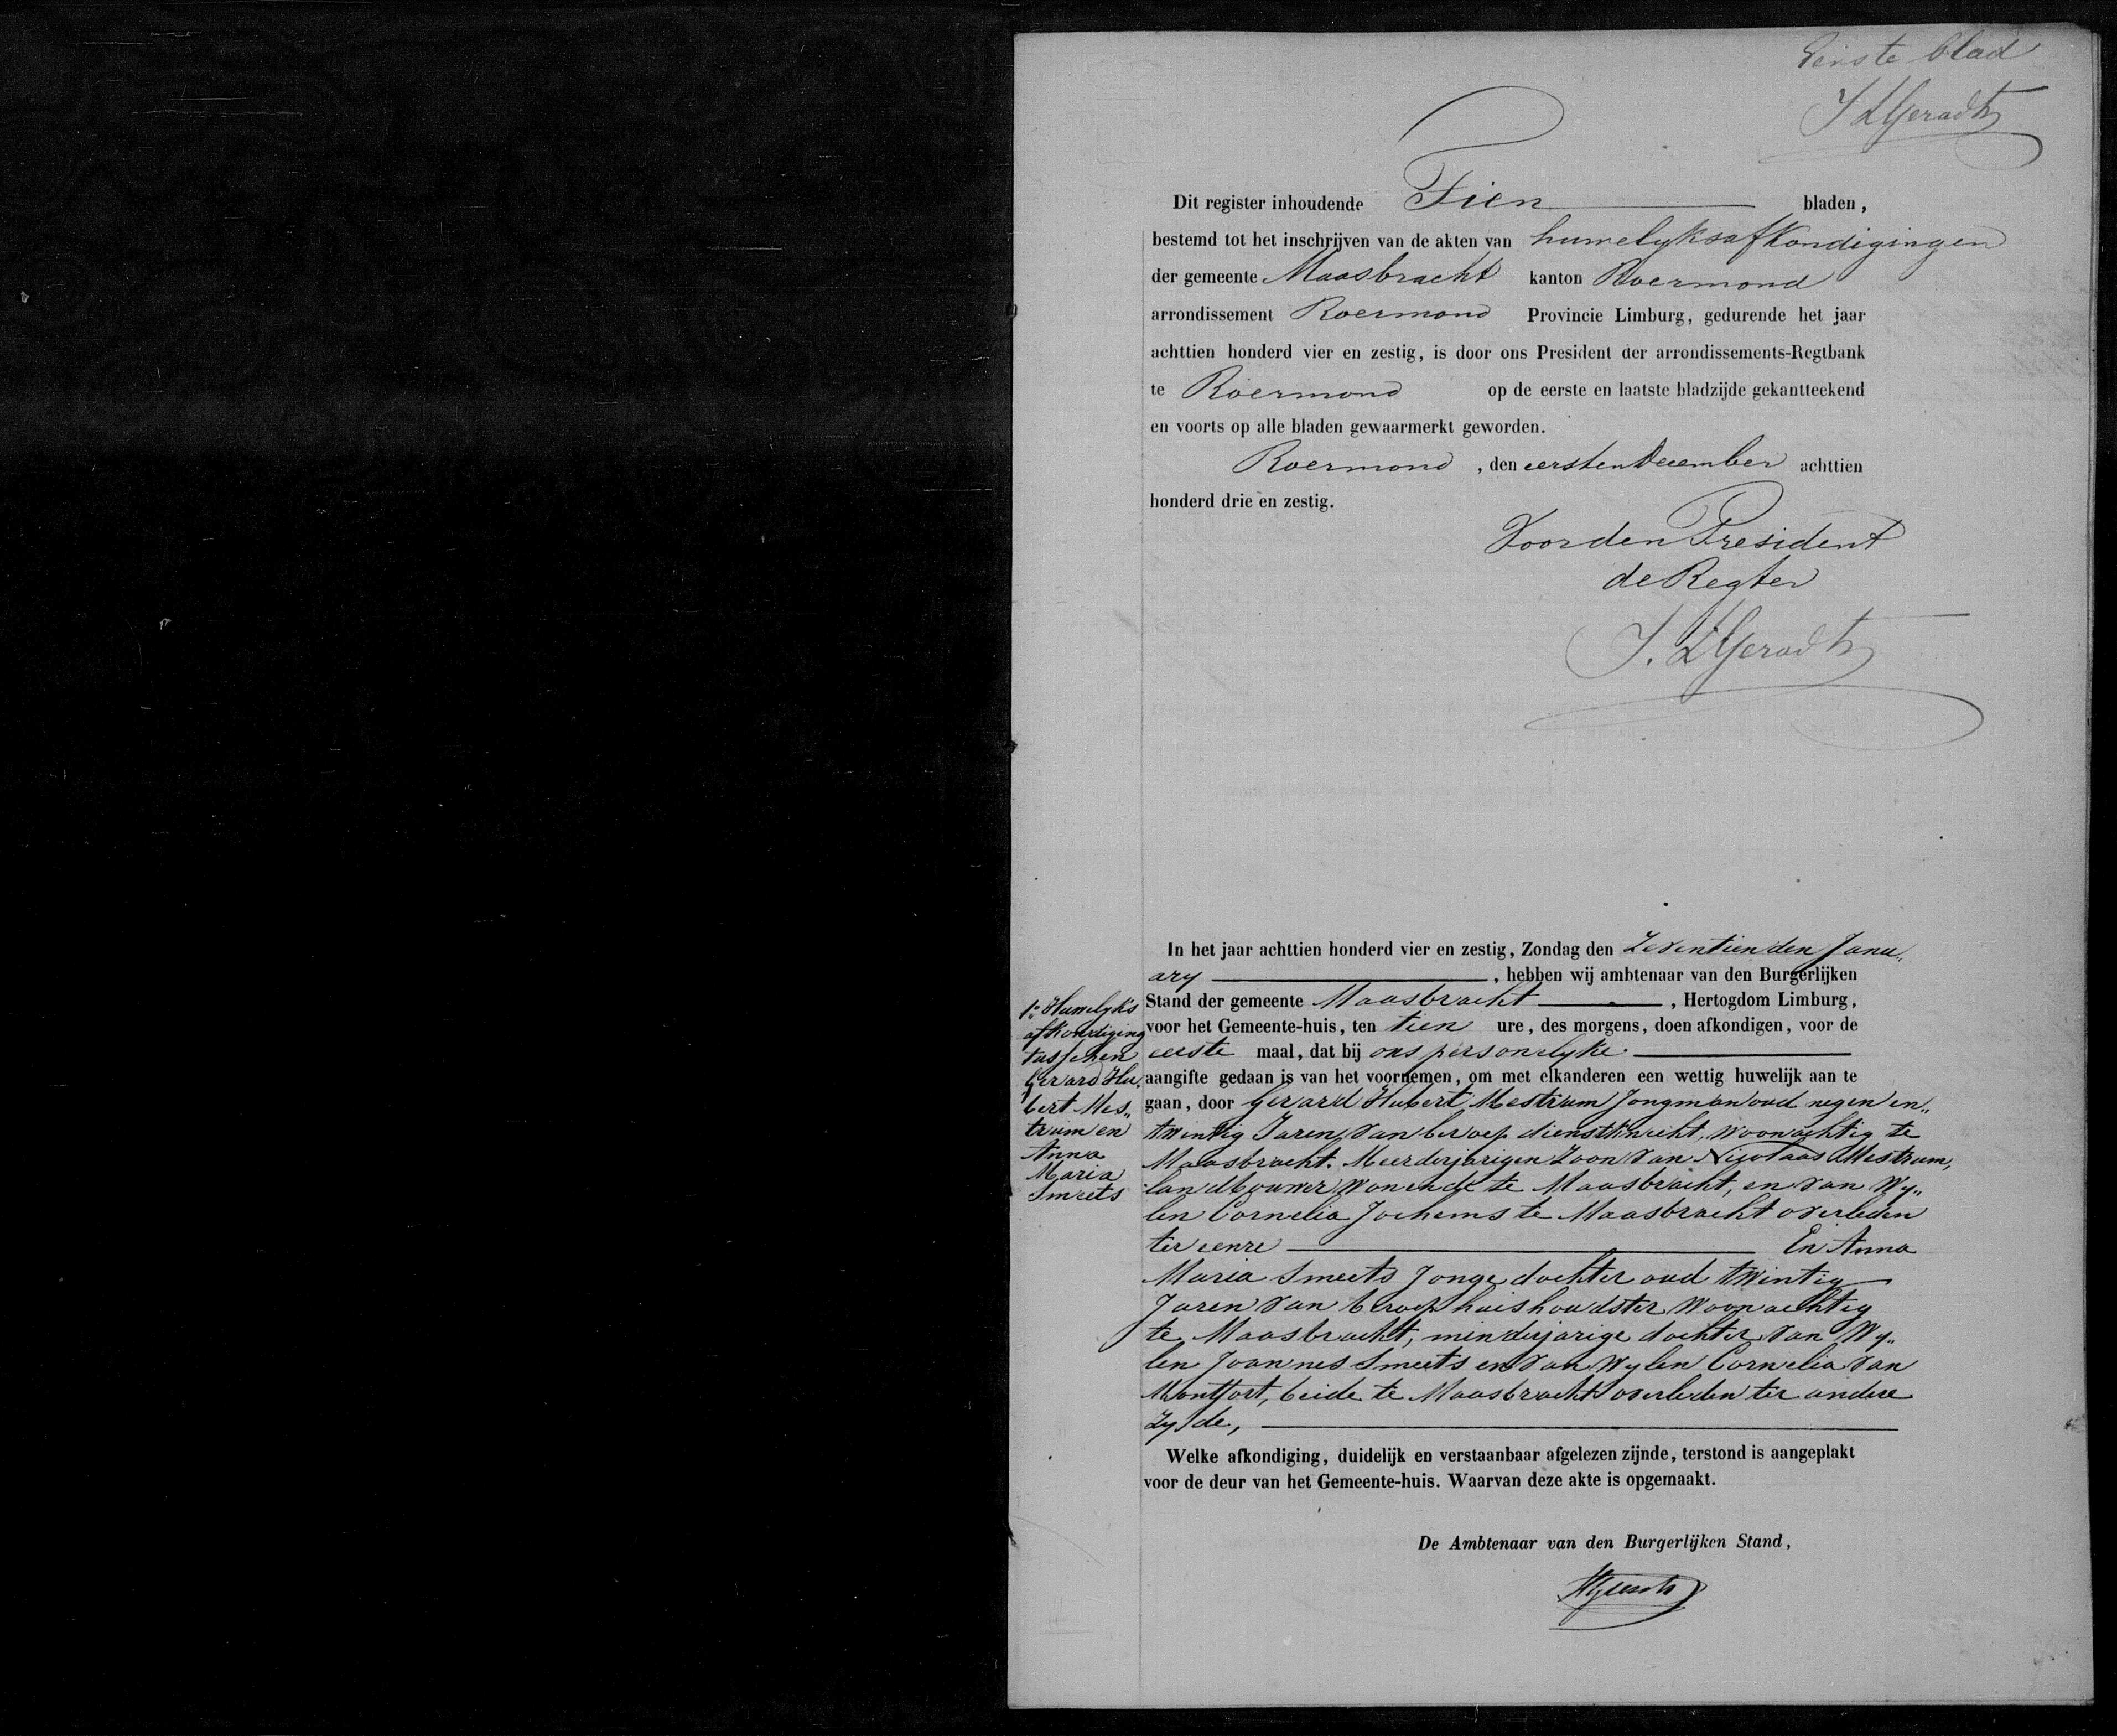 Eerste blad
J L Geradts
Dit register inhoudende Tien bladen,
bestemd tot het inschrijven van de akten van huwelyksafkondigingen
der gemeente Maasbracht kanton Roermond
arrondissement Roermond Provincie Limburg, gedurende het jaar
achttien honderd vier en zestig, is door ons President der arrondissements-Regtbank
te Roermond op de eerste en laatste bladzijde gekantteekend
en voorts op alle bladen gewaarmerkt geworden.
Roermond, den eersten December achttien
honderd drie en zestig.
Voor den President
de Regter
J. L Geradts
In het jaar achttien honderd vier en zestig, Zondag den Zeventienden Janu„
ary, hebben wij ambtenaar van den Burgerlijken
Stand der gemeente Maasbracht, Hertogdom Limburg,
voor het Gemeente-huis, ten tien ure, des morgens, doen afkondigen, voor de
eerste maal, dat bij ons personelyke
aangifte gedaan is van het voornemen, om met elkanderen een wettig huwelijk aan te
gaan, door Gerard Hubert Mestrum Jongman oud negen en„
twintig Jaren, van beroep dienstknecht, woonachtig te
Maasbracht. Meerderjarigen Zoon van Nicolaas Mestrum,
landbouwer wonende te Maasbracht, en van Wy„
len Cornelia Jochems te Maasbracht overleden
ter eenre En Anna
Maria Smeets Jonge dochter oud twintig
Jaren van beroep huishoudster woonachtig
te Maasbracht, minderjarige dochter van Wy„
len Joannes Smeets en van wylen Cornelia van
Montfort, beide te Maasbracht overleden ter andere
zyde,
1e Huwelyks
afkondiging
tusschen
Gerard Hu„
bert Mes„
trum en
Anna
Maria
Smeets
Welke afkondiging, duidelijk en verstaanbaar afgelezen zijnde, terstond is aangeplakt
voor de deur van het Gemeente-huis. Waarvan deze akte is opgemaakt.
De Ambtenaar van den Burgerlijken Stand,